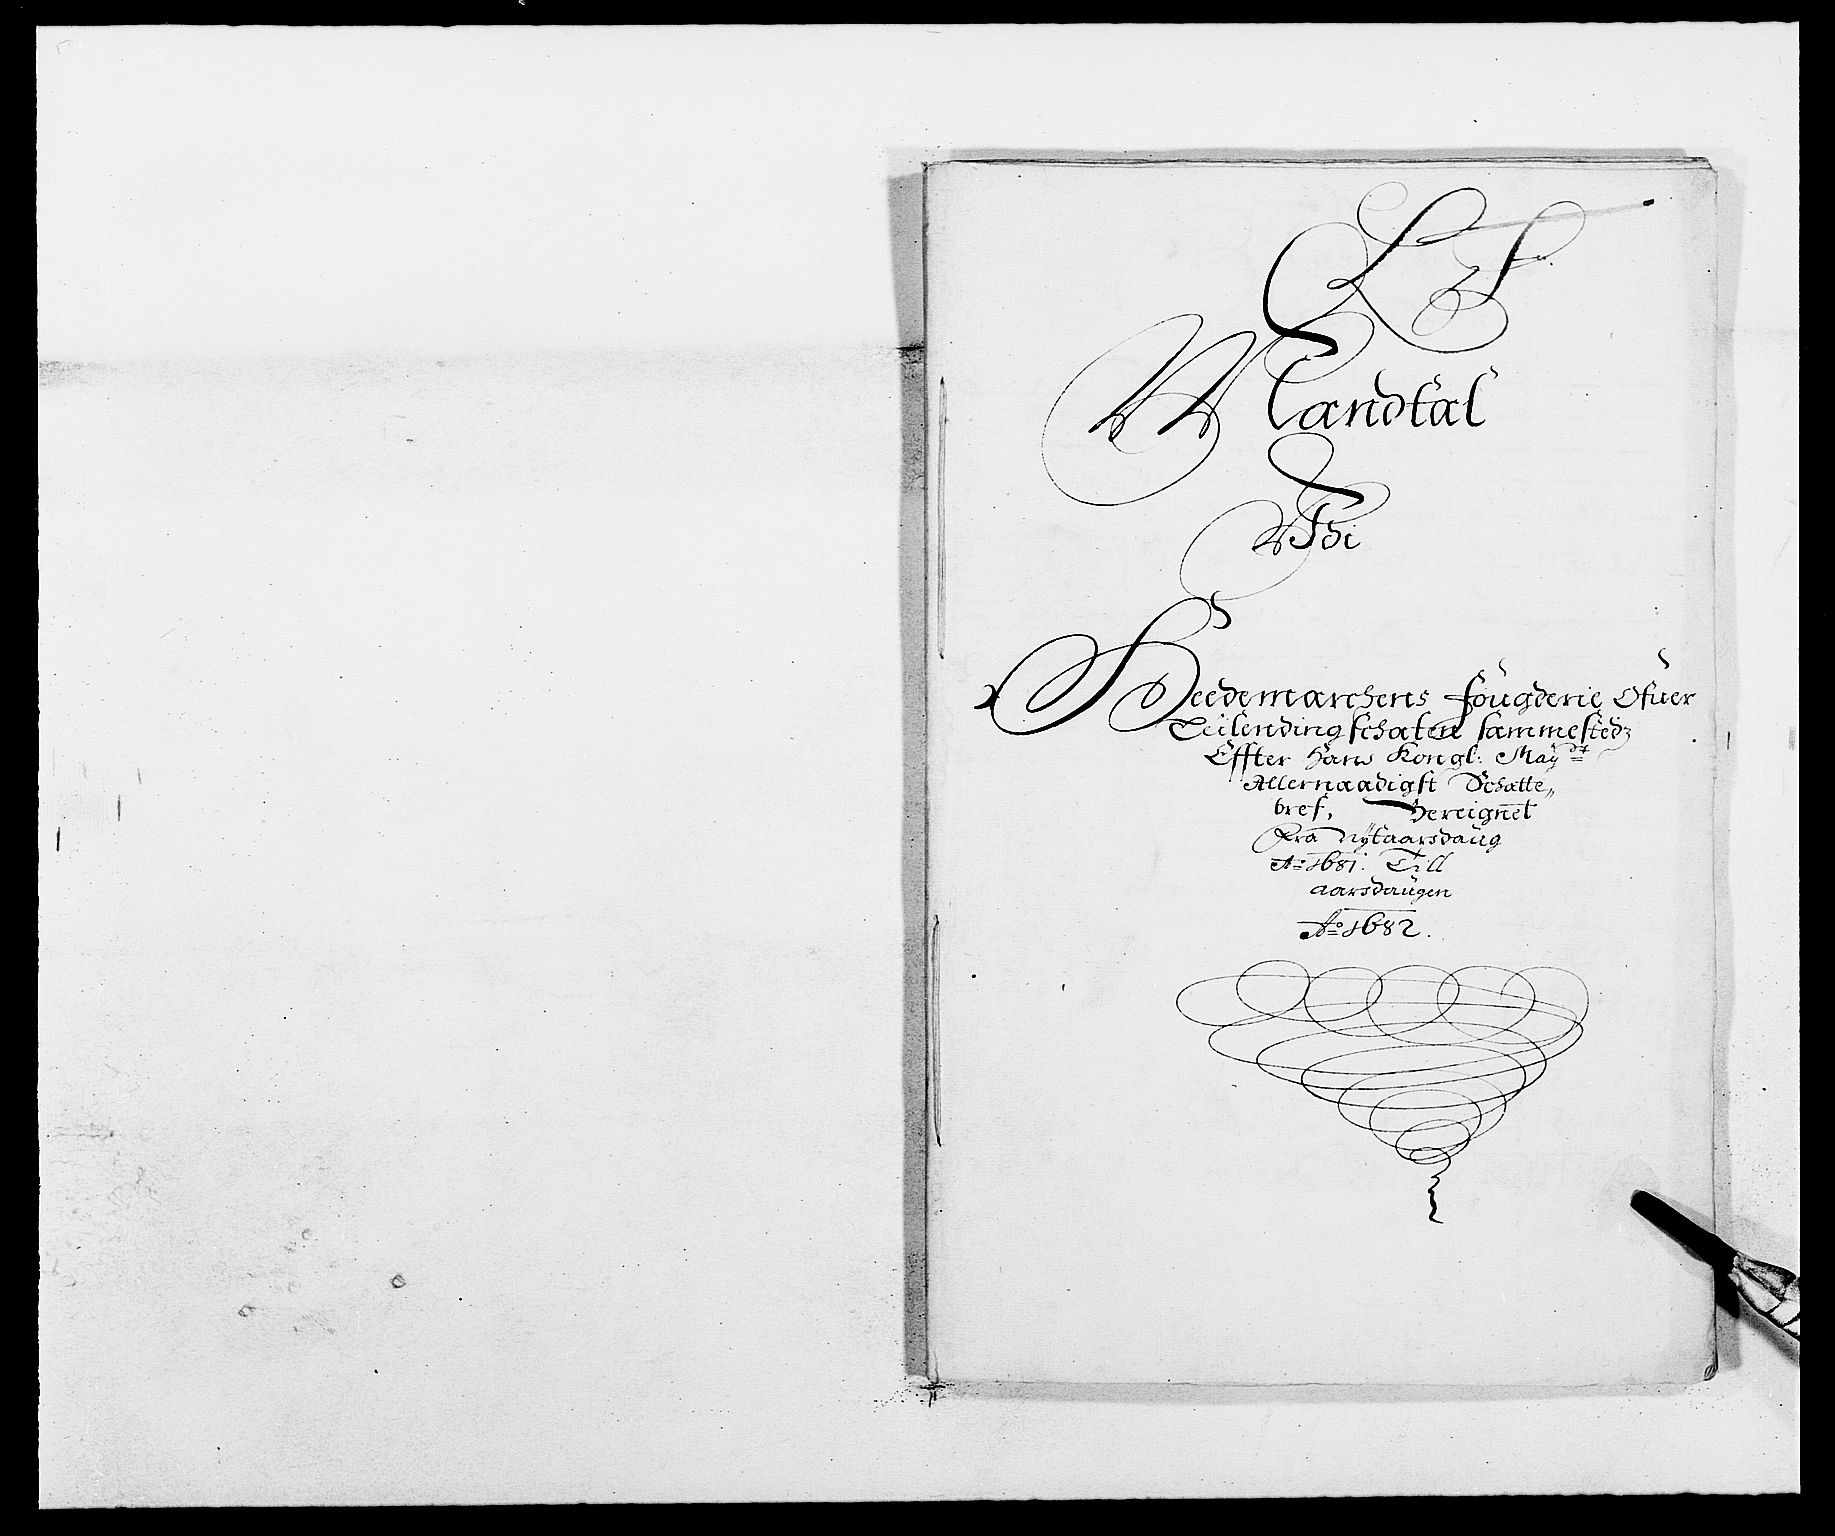 L S
Mandtal
Udi
Heedemarchens Fougderie Ofuer
Teilendingschaten sammestedz
Effter Hans Kongl: Maÿ.dt
Allernaadigst Schatte„
bref, Bereignet
Fra Nÿtaarsdaug
Ao 1681. Till
aarsdaugen
Ao 1682.